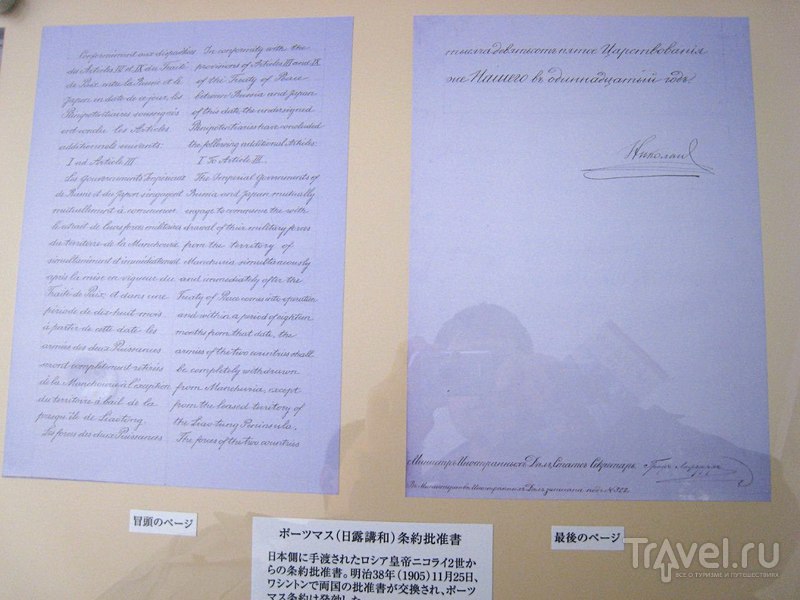 Conformément aux dispositions
des Articles III et IX du Traité
de Paix entre la Russie et le
Japon en date de ce jour, les
Plénipotentiaires soussignés
ont conclu les Articles
additionnels suivants:
I ad Article III.
Les Gouvernements Impériaux
de Russie et du Japon s'engagent
mutuellement à commencer
le retrait de leurs forces militaires
du territoire de la Manchourie
simultanément et immédiatement
après la mise en vigueur du
Traité de Paix; et dans une
période de dix-huit mois
à partir de cette date les
armées des deux Puissances
seront complètement retirées
de la Manchourie, à l'exception
du territoire à bail de la
presqu'île de Liaotong.
Les forces des deux Puissances
In conformity with the
provisions of Articles III and IX
of the Treaty of Peace
between Russia and Japan
of this date, the undersigned
Plenipotentiaries have concluded
the following additional Articles:
I To Article III.
The Imperial Governments of
Russia and Japan mutually
engage to commence the with-
drawal of their military forces
from the territory of
Manchuria simultaneously
and immediately after the
Treaty of Peace comes into operation
and within a period of eighteen
months from that date, the
armies of the two countries shall
be completely withdrawn
from Manchuria, except
from the leased territory of
the Liaotung Peninsula.
The forces of the two countries
тысяча девятьсотъ пятое Царствованія
же Нашего въ одиннадцатый годъ.
Николай
Министръ Иностранныхъ Дѣлъ, Статсъ-Секретарь Графъ
冒頭のページ
最後のページ
ポーツマス(日露講和)条約批准書
日本側に手渡されたロシア皇帝ニコライ2世か
らの条約批准書。明治38年(1905)11月25日、
ワシントンで両国の批准書が交換され、ポーツ
マス条約は発効した
TRAVEL.RU
ВСЕ О ТУРИЗМЕ И ПУТЕШЕСТВИЯХ